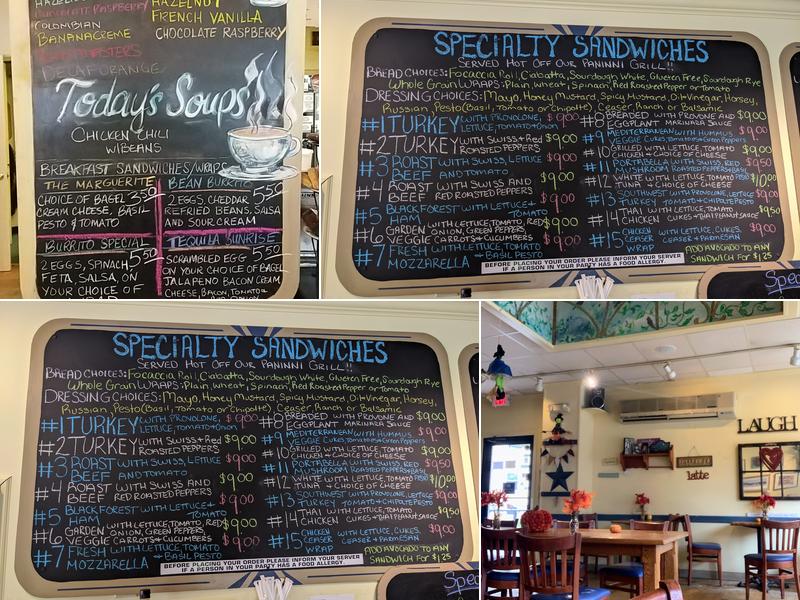 HAZELNUT
CHOCOLATE RASPBERRY
FRENCH VANILLA
COLOMBIAN
CHOCOLATE RASPBERRY
BANANACREME
DECAF ORANGE
Today's Soups
CHICKEN CHILI
W/BEANS
BREAKFAST SANDWICHES/WRAPS
THE MARGUERITE 3.50
CHOICE OF BAGEL
CREAM CHEESE, BASIL
PESTO & TOMATO
BEAN BURRITO 5.50
2 EGGS, CHEDDAR
REFRIED BEANS, SALSA
AND SOUR CREAM
BURRITO SPECIAL 5.50
2 EGGS, SPINACH,
FETA, SALSA, ON
YOUR CHOICE OF
TEQUILA SUNRISE 5.50
SCRAMBLED EGG
ON YOUR CHOICE OF BAGEL
JALAPENO BACON CREAM
CHEESE, BACON, TOMATO &
SPECIALTY SANDWICHES
SERVED HOT OFF OUR PANINNI GRILL!!
BREAD CHOICES: Focaccia Roll, Ciabatta, Sourdough White, Gluten Free, Sourdough Rye
Whole Grain WRAPS: Plain, Wheat, Spinach, Red Roasted Pepper or Tomato
DRESSING CHOICES: Mayo, Honey Mustard, Spicy Mustard, Oil+Vinegar, Horsey,
Russian, Pesto (Basil, Tomato or Chipotle) Ceaser, Ranch or Balsamic
#1 TURKEY WITH PROVOLONE, LETTUCE, TOMATO+ONION $9.00
#2 TURKEY WITH SWISS+RED ROASTED PEPPERS $9.00
#3 ROAST BEEF WITH SWISS, LETTUCE AND TOMATO $9.00
#4 ROAST BEEF WITH SWISS AND RED ROASTED PEPPERS $9.00
#5 BLACK FOREST HAM WITH LETTUCE+ TOMATO $9.00
#6 GARDEN VEGGIE WITH LETTUCE, TOMATO, RED ONION, GREEN PEPPERS, CARROTS+CUCUMBERS $9.00
#7 FRESH MOZZARELLA WITH LETTUCE, TOMATO + BASIL PESTO $9.00
#8 BREADED EGGPLANT WITH PROVONE AND MARINARA SAUCE $9.00
#9 MEDITERRANEAN VEGGIE WITH HUMMUS $9.00
#10 GRILLED CHICKEN WITH LETTUCE, TOMATO + CHOICE OF CHEESE $9.00
#11 PORTABELLA MUSHROOM WITH SWISS, RED ROASTED PEPPERS $9.50
#12 WHITE TUNA WITH LETTUCE, TOMATO + CHOICE OF CHEESE $10.00
#13 SOUTHWEST TURKEY WITH PROVOLONE, LETTUCE TOMATO + CHIPOTLE PESTO $9.00
#14 THAI CHICKEN WITH LETTUCE, TOMATO CUKES + THAI PEANUT SAUCE $9.50
#15 CHICKEN CEASER WRAP WITH LETTUCE, CUKES, CEASER + PARMESAN $9.00
ADD AVOCADO TO ANY
SANDWICH FOR $1.25
BEFORE PLACING YOUR ORDER PLEASE INFORM YOUR SERVER
IF A PERSON IN YOUR PARTY HAS A FOOD ALLERGY.
Spec
SPECIALTY SANDWICHES
SERVED HOT OFF OUR PANINNI GRILL!!
BREAD CHOICES: Focaccia Roll, Ciabatta, Sourdough White, Gluten Free, Sourdough Rye
Whole Grain WRAPS: Plain, Wheat, Spinach, Red Roasted Pepper or Tomato
DRESSING CHOICES: Mayo, Honey Mustard, Spicy Mustard, Oil+Vinegar, Horsey,
Russian, Pesto (Basil, Tomato or Chipotle) Ceaser, Ranch or Balsamic
#1 TURKEY WITH PROVOLONE, LETTUCE, TOMATO+ONION $9.00
#2 TURKEY WITH SWISS+RED ROASTED PEPPERS $9.00
#3 ROAST BEEF WITH SWISS, LETTUCE AND TOMATO $9.00
#4 ROAST BEEF WITH SWISS AND RED ROASTED PEPPERS $9.00
#5 BLACK FOREST HAM WITH LETTUCE+ TOMATO $9.00
#6 GARDEN VEGGIE WITH LETTUCE, TOMATO, RED ONION, GREEN PEPPERS, CARROTS+CUCUMBERS $9.00
#7 FRESH MOZZARELLA WITH LETTUCE, TOMATO + BASIL PESTO $9.00
#8 BREADED EGGPLANT WITH PROVONE AND MARINARA SAUCE $9.00
#9 MEDITERRANEAN VEGGIE WITH HUMMUS CUKES, TOMATOES + GREEN PEPPERS $9.00
#10 GRILLED CHICKEN WITH LETTUCE, TOMATO + CHOICE OF CHEESE $9.00
#11 PORTABELLA MUSHROOM WITH SWISS, RED ROASTED PEPPERS $9.50
#12 WHITE TUNA WITH LETTUCE, TOMATO + CHOICE OF CHEESE $10.00
#13 SOUTHWEST TURKEY WITH PROVOLONE, LETTUCE TOMATO + CHIPOTLE PESTO $9.00
#14 THAI CHICKEN WITH LETTUCE, TOMATO CUKES + THAI PEANUT SAUCE $9.50
#15 CHICKEN CEASER WRAP WITH LETTUCE, CUKES, CEASER + PARMESAN $9.00
ADD AVOCADO TO ANY
SANDWICH FOR $1.25
BEFORE PLACING YOUR ORDER PLEASE INFORM YOUR SERVER
IF A PERSON IN YOUR PARTY HAS A FOOD ALLERGY.
Spec
LAUGH
latte